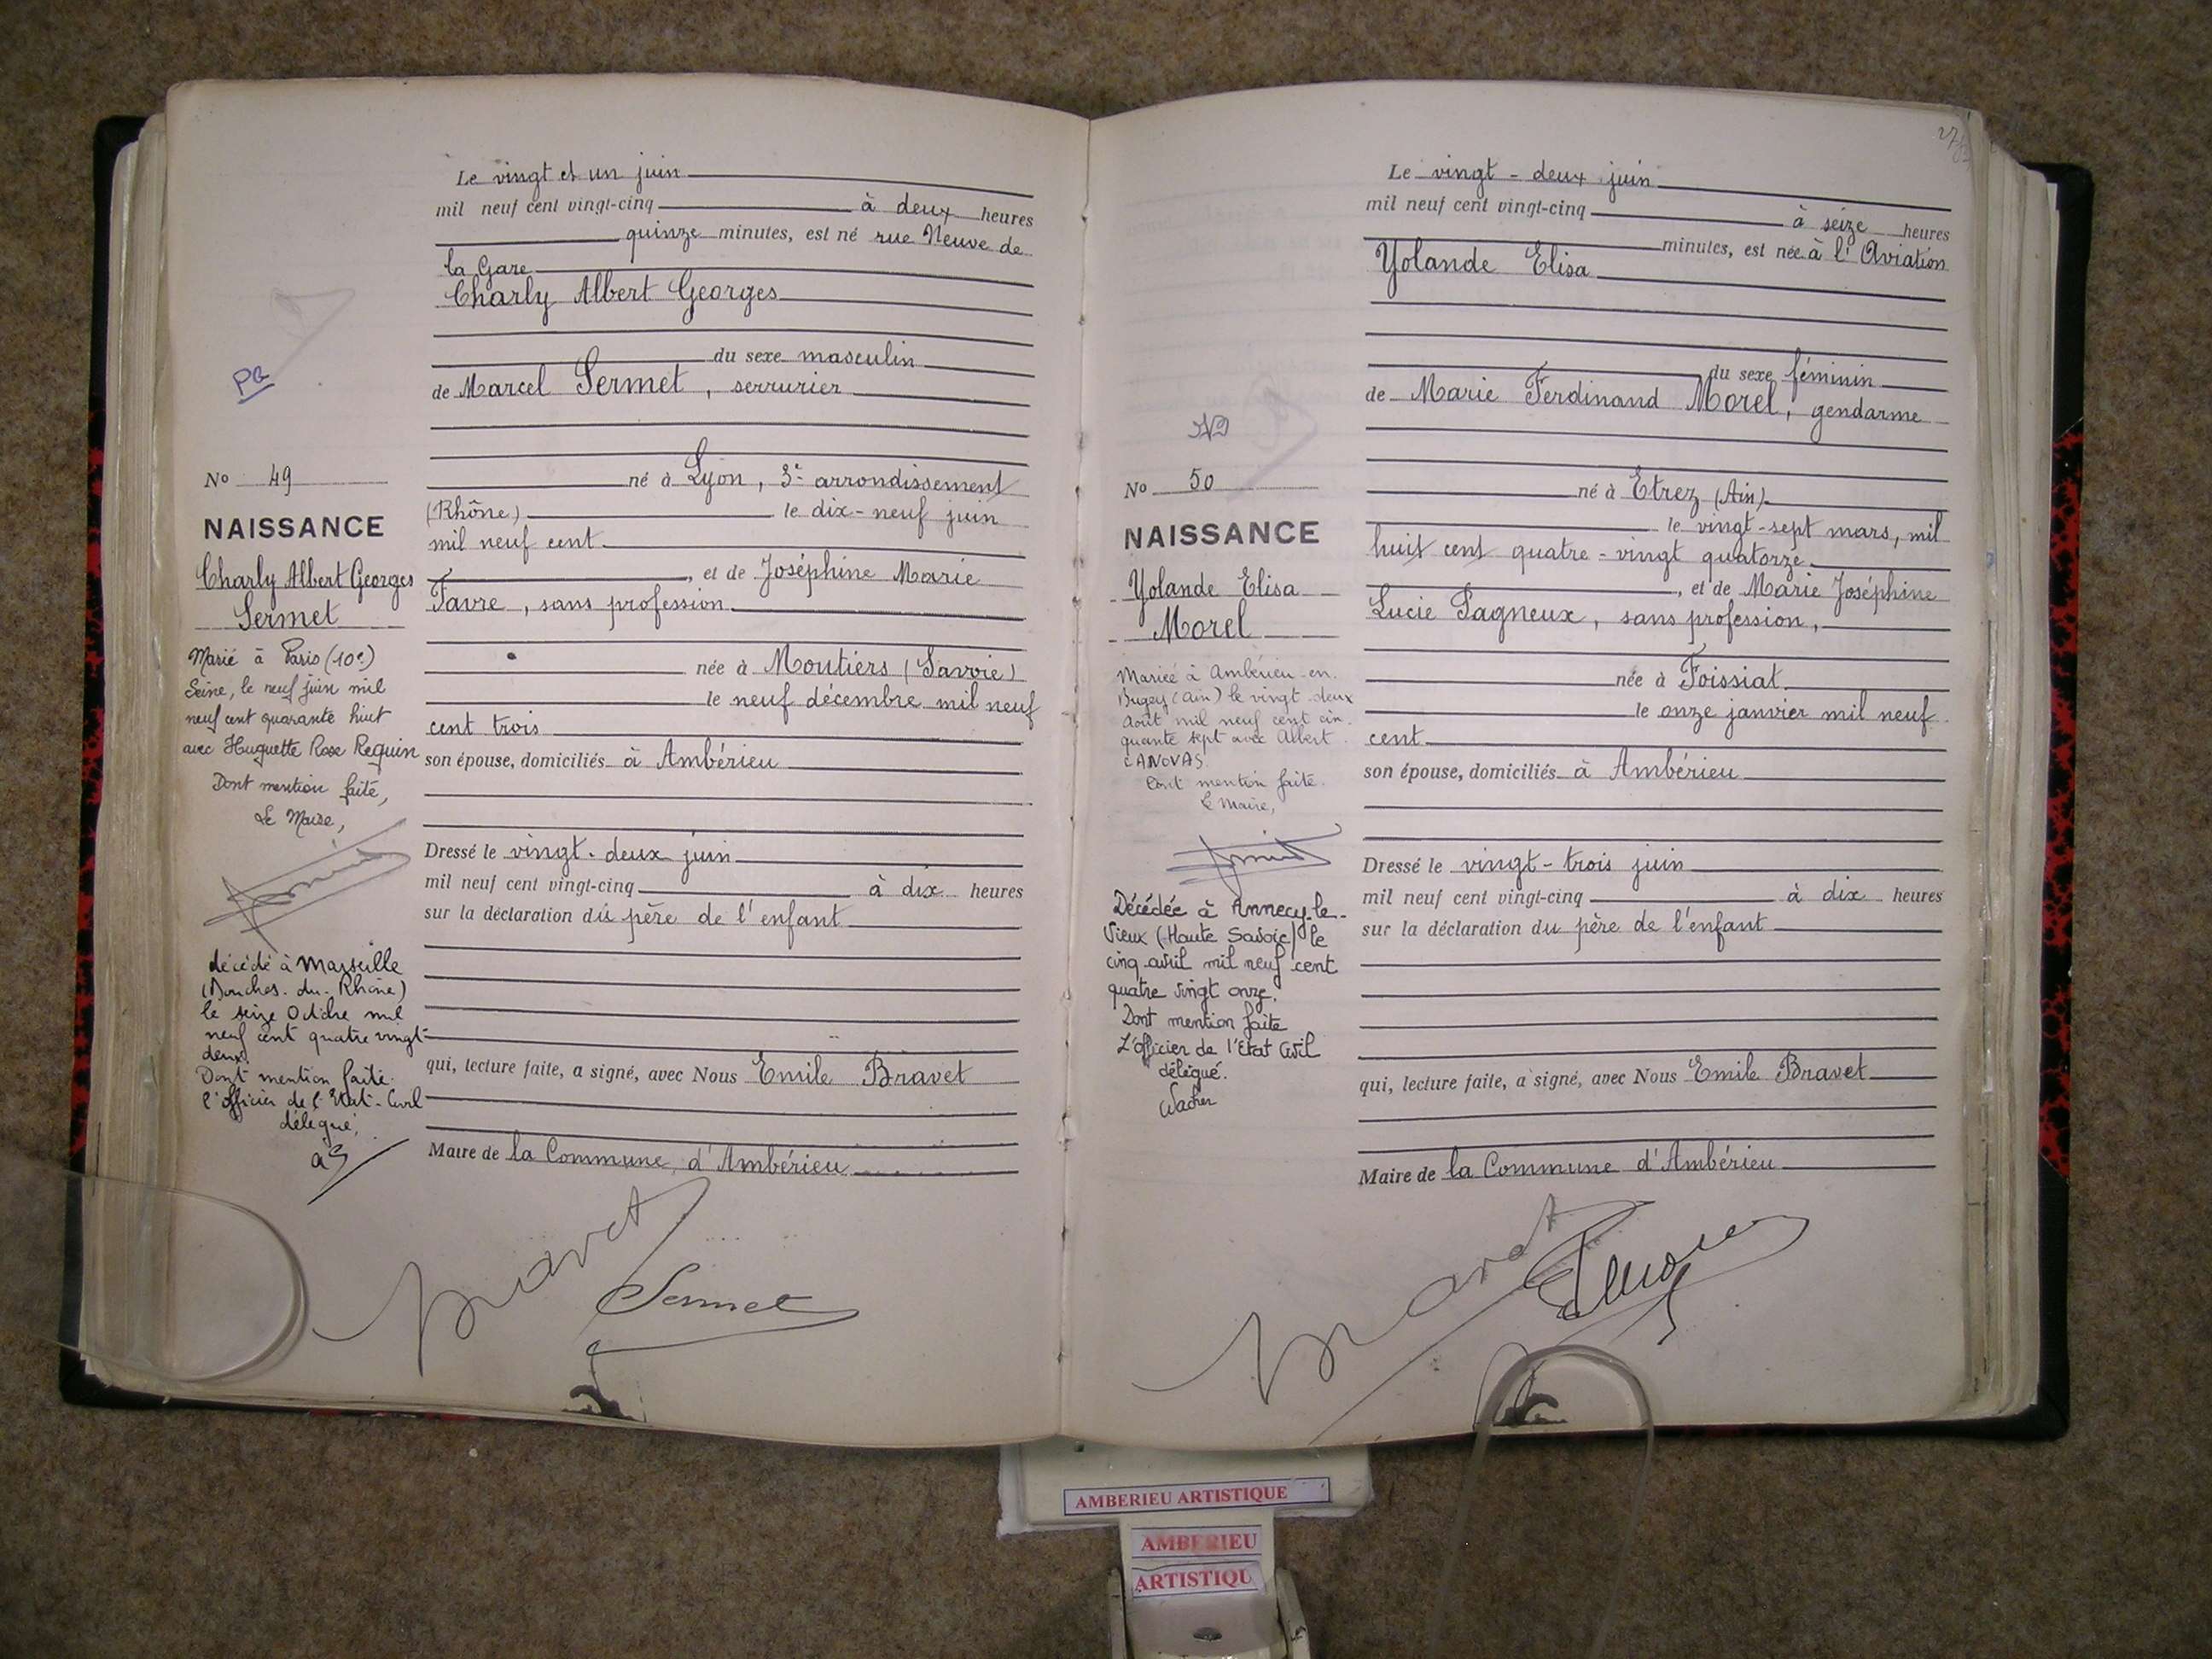 Le vingt et un juin
mil neuf cent vingt-cinq à deux heures
quinze minutes, est né rue Neuve de
la Gare
Charly Albert Georges
du sexe masculin
de Marcel Sermet, serrurier
né à Lyon, 3e arrondissement
(Rhône) le dix-neuf juin
mil neuf cent
, et de Joséphine Marie
Favre, sans profession
née à Moutiers (Savoie)
le neuf décembre mil neuf
cent trois
son épouse, domiciliés à Ambérieu
Dressé le vingt-deux juin
mil neuf cent vingt-cinq à dix heures
sur la déclaration du père de l'enfant
qui, lecture faite, a signé, avec Nous Emile Bravet
Maire de la Commune d'Ambérieu
Bravet
Sermet
PB
No 49
NAISSANCE
Charly Albert Georges
Sermet
Marié à Paris (10e)
Seine, le neuf juin mil
neuf cent quarante huit
avec Huguette Rose Requin
Dont mention faite,
Le Maire,
décédé à Marseille
(Bouches-du-Rhône)
le seize Octobre mil
neuf cent quatre vingt
deux.
Dont mention faite.
l'officier de l'Etat-Civil
délégué,
Le vingt-deux juin
mil neuf cent vingt-cinq à seize heures
minutes, est née à l'Aviation
Yolande Elisa
du sexe féminin
de Marie Ferdinand Morel, gendarme
né à Etrez (Ain)
le vingt-sept mars, mil
huit cent quatre-vingt quatorze
, et de Marie Joséphine
Lucie Pagneux, sans profession,
née à Foissiat
le onze janvier mil neuf
cent
son épouse, domiciliés à Ambérieu
Dressé le vingt-trois juin
mil neuf cent vingt-cinq à dix heures
sur la déclaration du père de l'enfant
qui, lecture faite, a signé, avec Nous Emile Bravet
Maire de la Commune d'Ambérieu
Bravet
No 50
NAISSANCE
Yolande Elisa
Morel
Mariée à Ambérieu-en-
Bugey (Ain) le vingt deux
Août mil neuf cent cin-
quante sept avec Albert
CANOVAS.
Dont mention faite.
Le Maire,
Décédée à Annecy-le-
Vieux (Haute Savoie) le
cinq avril mil neuf cent
quatre vingt onze.
Dont mention faite
L'officier de l'Etat Civil
délégué.
AMBERIEU ARTISTIQUE
AMBERIEU
ARTISTIQU